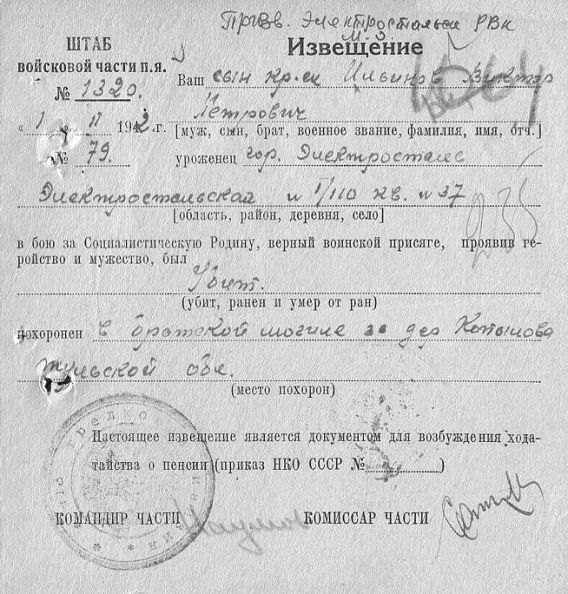 Призв. Электростальск РВК
М.О.
ШТАБ
войсковой части п.я.
№ 1320.
Извещение
Ваш сын кр-ец Ильинов Виктор
Петрович
« 1 » II 1942 г.
[муж, сын, брат, военное звание, фамилия, имя, отч.]
№ 79.
уроженец гор. Электросталь
Электростальской и 1/110 кв. и 37
[область, район, деревня, село]
в бою за Социалистическую Родину, верный воинской присяге, проявив ге-
ройство и мужество, был
Убит.
(убит, ранен и умер от ран)
похоронен в братской могиле за дер
Тульской обл.
(место похорон)
Настоящее извещение является документом для возбуждения хода-
тайства о пенсии (приказ НКО СССР № )
КОМАНДИР ЧАСТИ
КОМИССАР ЧАСТИ